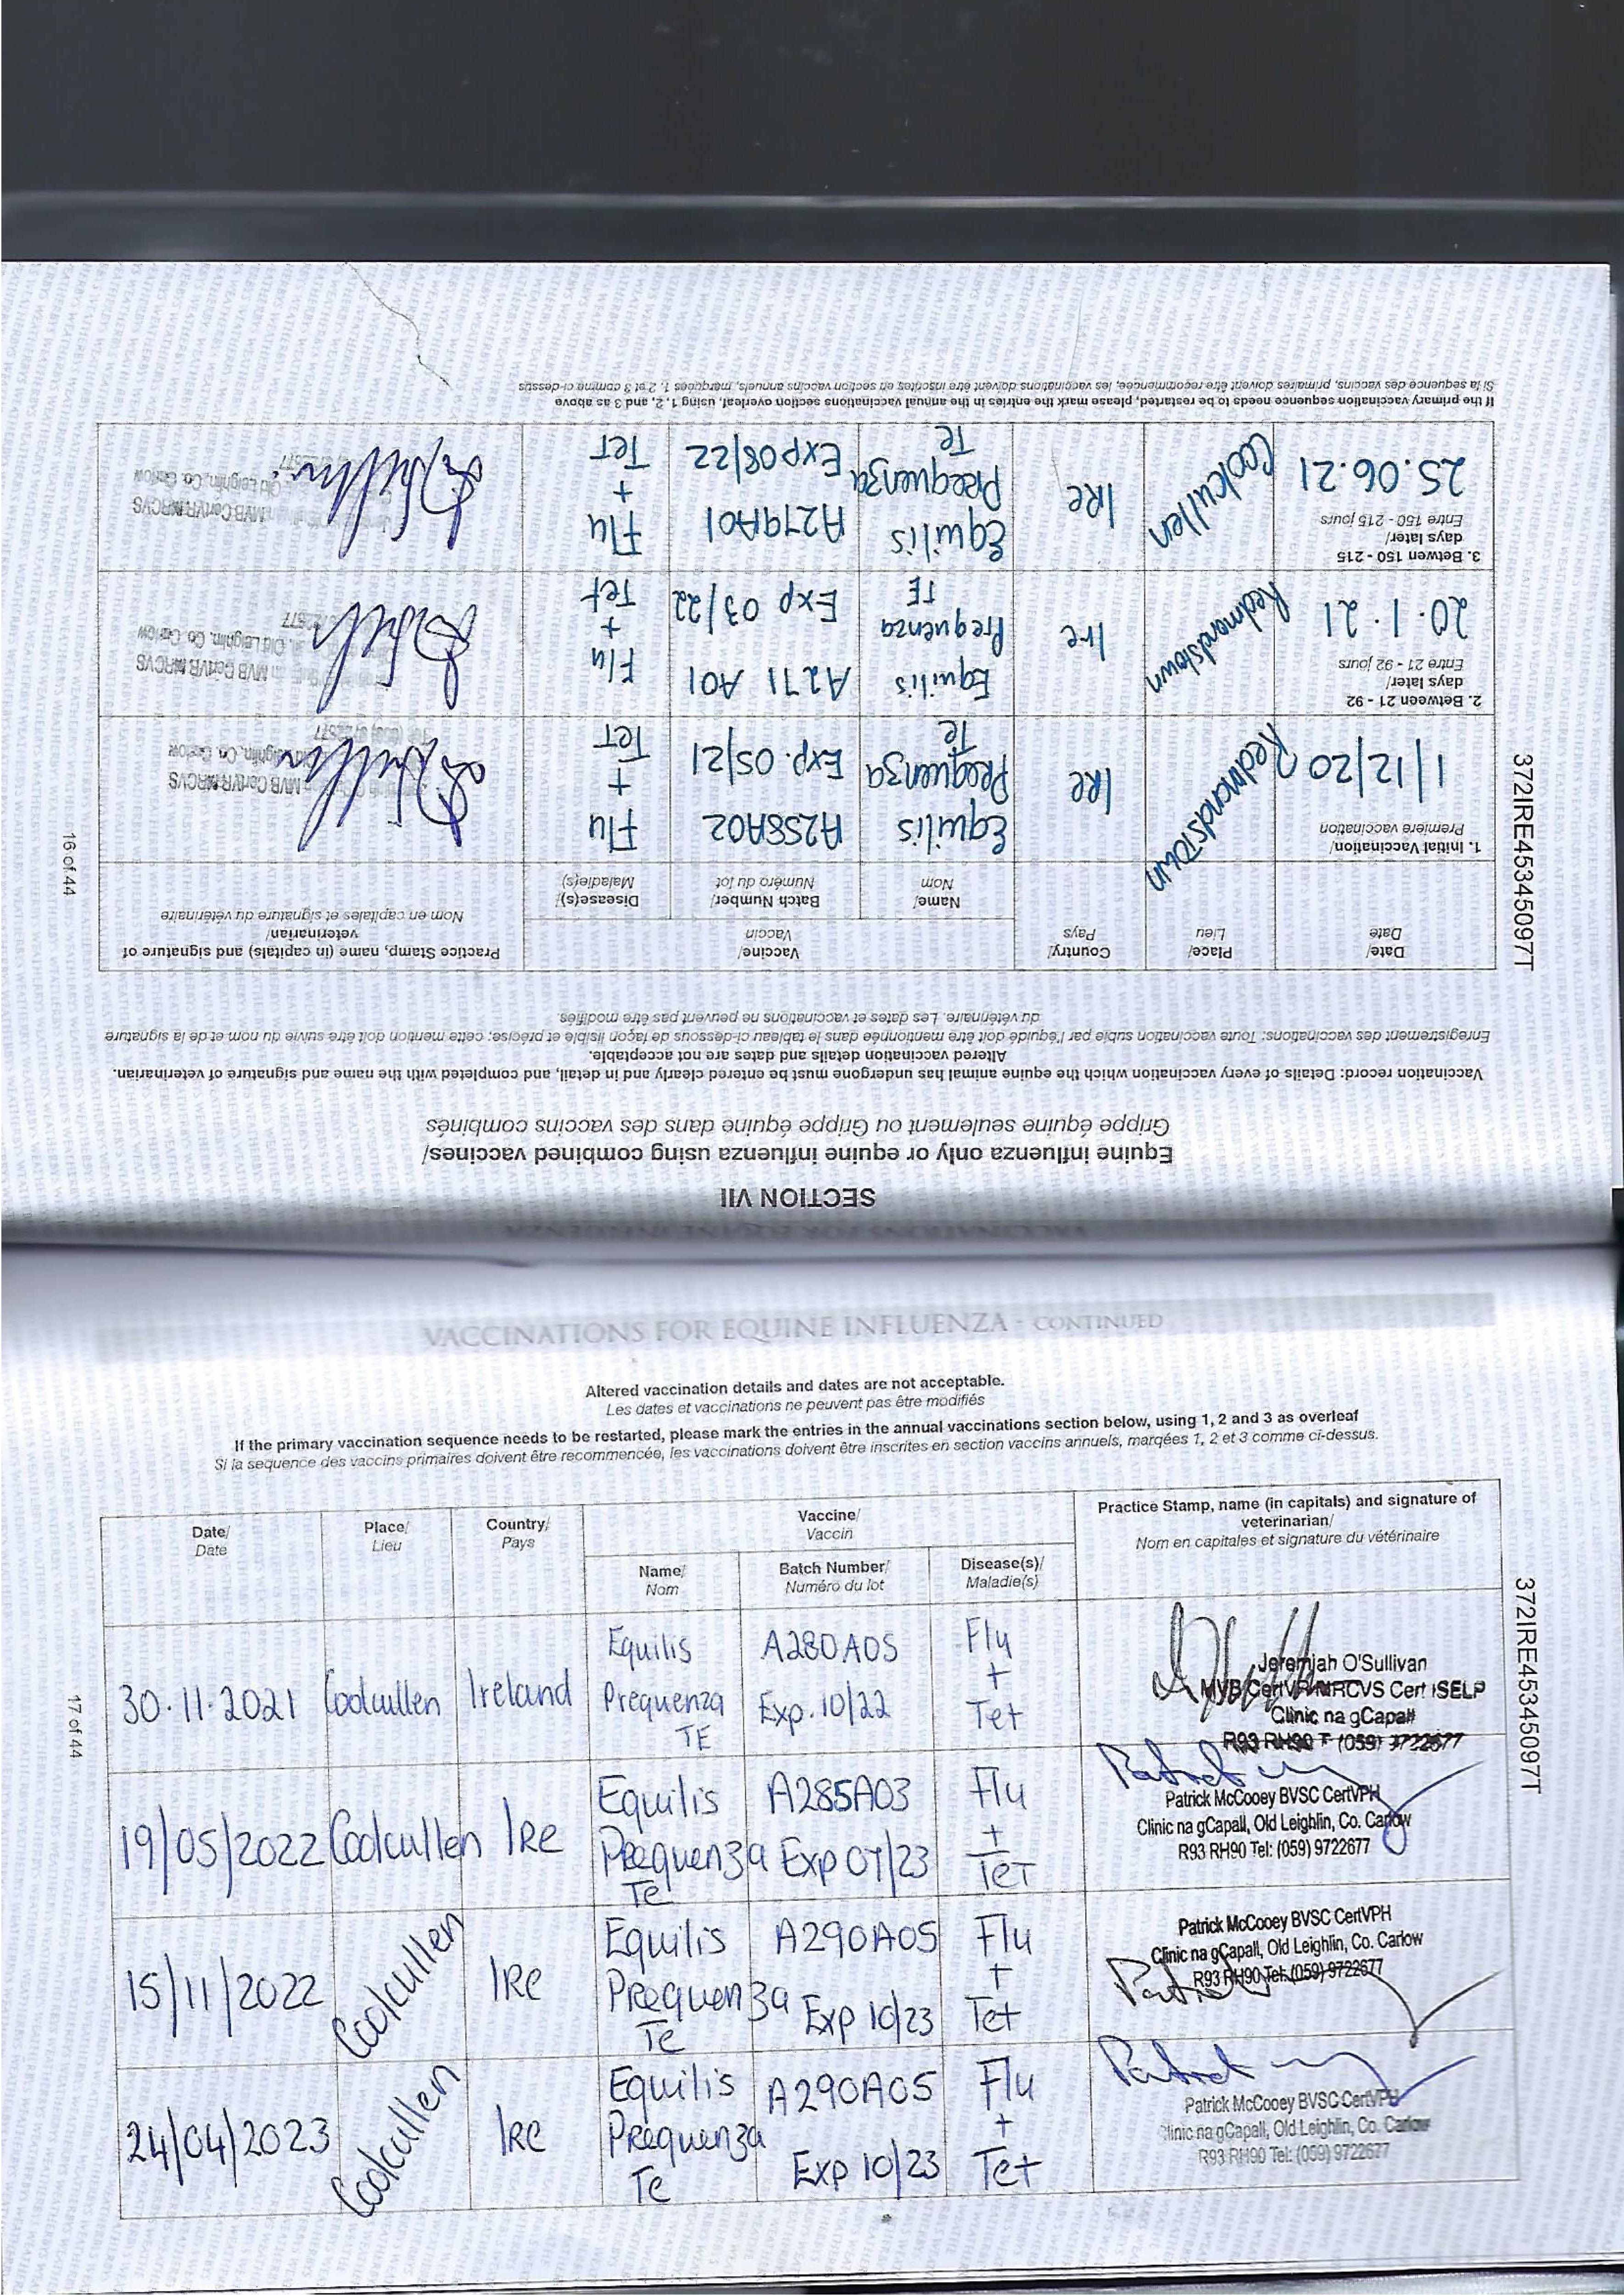 SECTION VII
Equine influenza only or equine influenza using combined vaccines/
Grippe équine seulement ou Grippe équine dans des vaccins combinés
Vaccination record: Details of every vaccination which the equine animal has undergone must be entered clearly and in detail, and completed with the name and signature of veterinarian.
Altered vaccination details and dates are not acceptable.
Enregistrement des vaccinations: Toute vaccination subie par l'équidé doit être mentionnée dans le tableau ci-dessous de façon lisible et précise; cette mention doit être suivie du nom et de la signature
du vétérinaire. Les dates et vaccinations ne peuvent pas être modifiés.
Date/
Date
Place/
Lieu
Country/
Pays
Vaccine/
Vaccin
Name/
Nom
Batch Number/
Numéro du lot
Disease(s)/
Maladie(s)
Practice Stamp, name (in capitals) and signature of
veterinarian/
Nom en capitales et signature du vétérinaire
1. Initial Vaccination/
Première vaccination
1/12/20
Redmondstown
IRe
Equilis
Prequenza
Te
A258A02
Exp. 05/21
Flu
+
TeT
MVB CertVR MRCVS
2. Between 21 - 92
days later/
Entre 21 - 92 jours
20.1.21
Redmondstown
Ire
Equilis
Prequenza
TE
A271 A01
Exp 03/22
Flu
+
Tet
MVB CertVR MRCVS
Old Leighlin, Co. Carlow
3. Betwen 150 - 215
days later/
Entre 150 - 215 jours
25.06.21
Coolcullen
IRe
Equilis
Prequenza
Te
A279A01
Exp08/22
Flu
+
TeT
MVB CertVR MRCVS
Old Leighlin, Co. Carlow
If the primary vaccination sequence needs to be restarted, please mark the entries in the annual vaccinations section overleaf, using 1, 2, and 3 as above
Si la sequence des vaccins, primaires doivent être recommencée, les vaccinations doivent être inscrites en section vaccins annuels, marquées 1, 2 et 3 comme ci-dessus
372IRE45345097T
16 of 44
VACCINATIONS FOR EQUINE INFLUENZA - CONTINUED
Altered vaccination details and dates are not acceptable.
Les dates et vaccinations ne peuvent pas être modifiés
If the primary vaccination sequence needs to be restarted, please mark the entries in the annual vaccinations section below, using 1, 2 and 3 as overleaf
Si la sequence des vaccins primaires doivent être recommencée, les vaccinations doivent être inscrites en section vaccins annuels, marqées 1, 2 et 3 comme ci-dessus.
Date/
Date
Place/
Lieu
Country/
Pays
Vaccine/
Vaccin
Name/
Nom
Batch Number/
Numéro du lot
Disease(s)/
Maladie(s)
Practice Stamp, name (in capitals) and signature of
veterinarian/
Nom en capitales et signature du vétérinaire
30.11.2021
Coolcullen
Ireland
Equilis
Prequenza
TE
A280A05
Exp. 10/22
Flu
+
Tet
Jeremiah O'Sullivan
MVB CertVR MRCVS Cert ISELP
Clinic na gCapall
R93 RH90 T (059) 9722677
19/05/2022
Coolcullen
IRe
Equilis
Prequenza
Te
A285A03
Exp 07/23
Flu
+
TeT
Patrick McCooey BVSC CertVPH
Clinic na gCapall, Old Leighlin, Co. Carlow
R93 RH90 Tel: (059) 9722677
15/11/2022
Coolcullen
IRe
Equilis
Prequenza
Te
A290A05
Exp 10/23
Flu
+
Tet
Patrick McCooey BVSC CertVPH
Clinic na gCapall, Old Leighlin, Co. Carlow
R93 RH90 Tel: (059) 9722677
24/04/2023
Coolcullen
IRe
Equilis
Prequenza
Te
A290A05
Exp 10/23
Flu
+
Tet
Patrick McCooey BVSC CertVPH
Clinic na gCapall, Old Leighlin, Co. Carlow
R93 RH90 Tel: (059) 9722677
372IRE45345097T
17 of 44